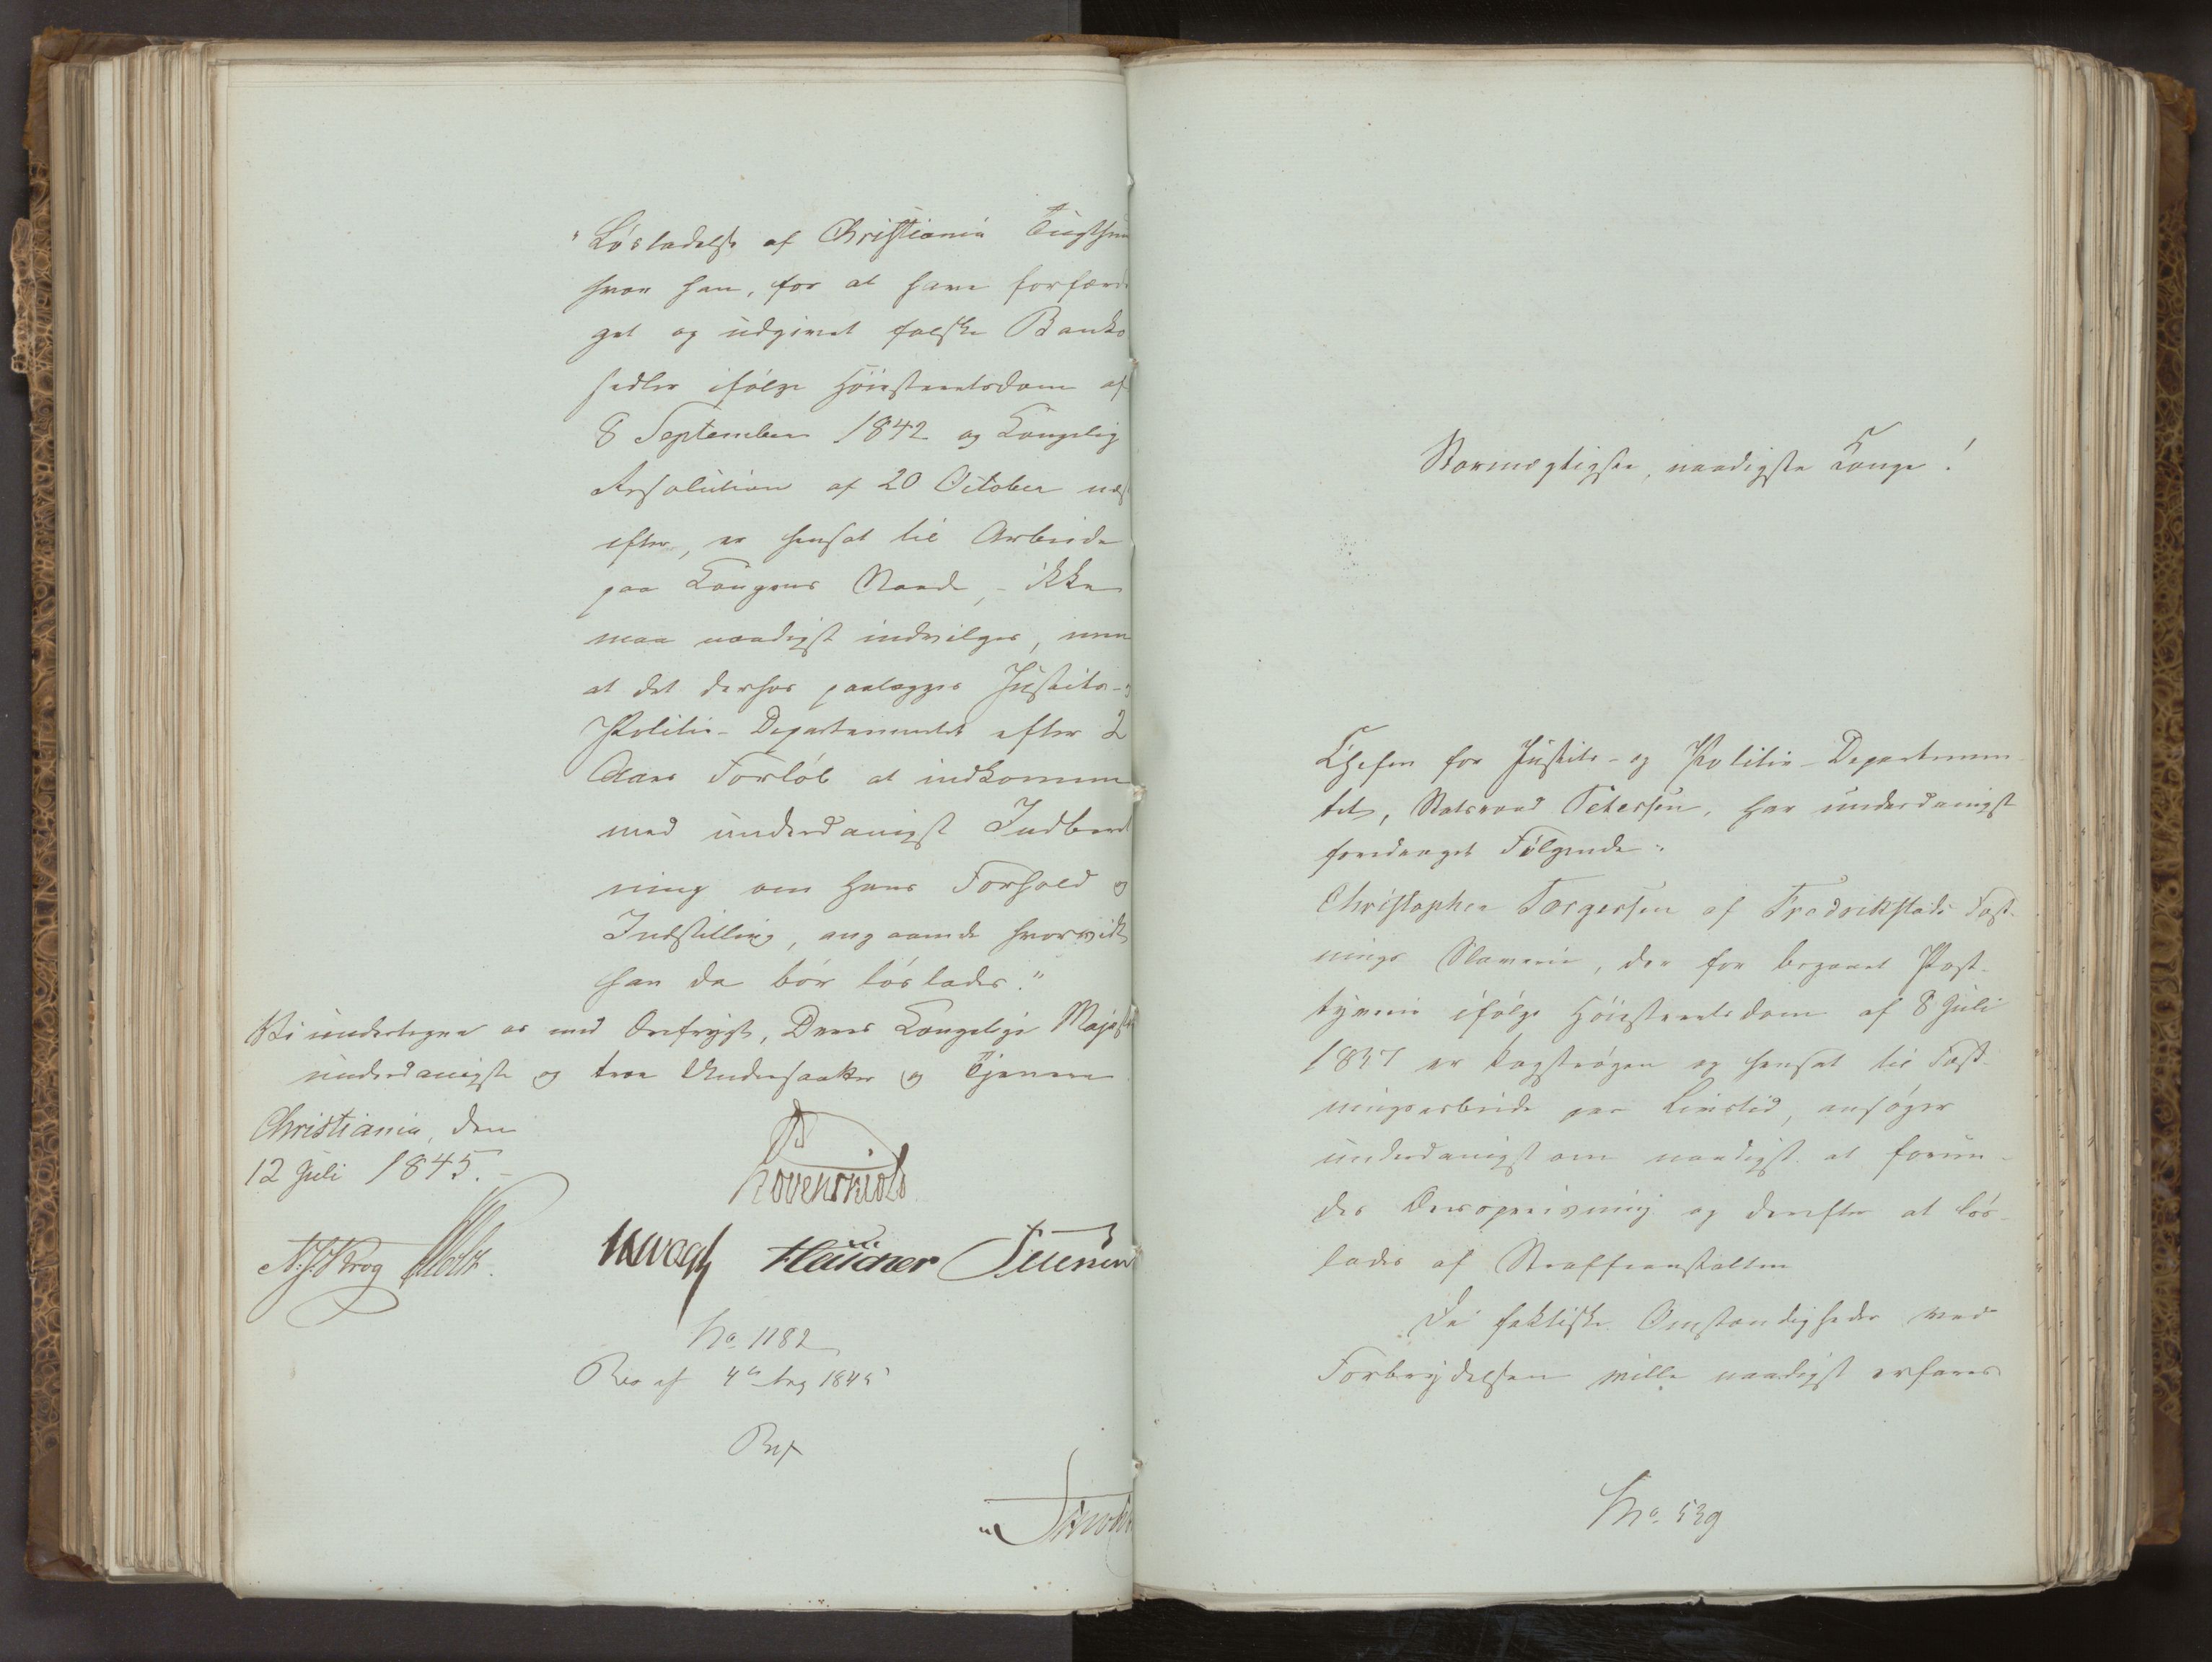 "Løsladelse af Christiania Tugthuus
hvor han, for at have forfærdi
get og udgivet falske Banko
sedler ifølge Høiesteretsdom af
8 September 1842 og Kongelig
Resolution af 20 October næst
efter, er hensat til Arbeide
paa Kongens Naade, - ikke
maa naadigst indvilges, men
at det derhos paalægges Justits- og
Politie-Departementet efter 2
Aars Forløb at indkomme
med underdanigst Indberet
ning om hans Forhold og
Indstilling, angaaende hvorvidt
han da bør løslades."
Vi undertegne os med Ærefrygt, Deres Kongelige Majestæts
underdanigste og troe Undersaatter og Tjenere
Christiania, den
12 Juli 1845.
Løvenskiold
N.J. Krog Holst. Vogt Petersen
No 1182
Res af 4de Aug 1845
Rex
Stormægtigste, naadigste Konge!
Chefen for Justits- og Politie-Departemen
tet, Statsraad Petersen, har underdanigst
foredraget Følgende:
Christopher Torgersen af Fredrikstads Fæst-
nings Slaverie, der for begaaet Post-
tyverie ifølge Høiesteretsdom af 8 Juli
1837 er kagstrøgen og hensat til Fæst-
ningsarbeide paa Livstid, ansøger
underdanigst om naadigst at forun-
des Æresopreisning og derefter at løs-
lades af Straffeanstalten
De faktiske Omstændigheder ved
Forbrydelsen ville naadigst erfares
No 539